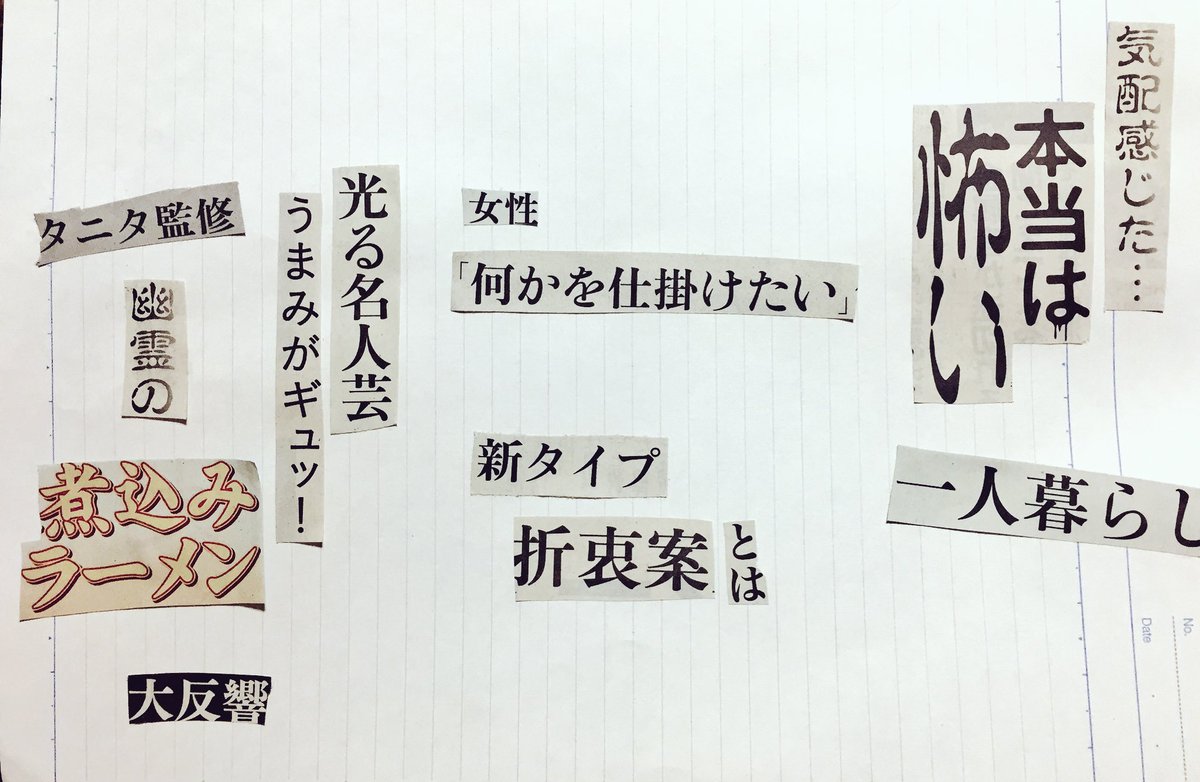 気配感じた…
本当は
怖い
一人暮らし
女性
「何かを仕掛けたい」
新タイプ
折衷案
とは
光る名人芸
うまみがギュッ!
タニタ監修
幽霊の
煮込み
ラーメン
大反響
No.
Date